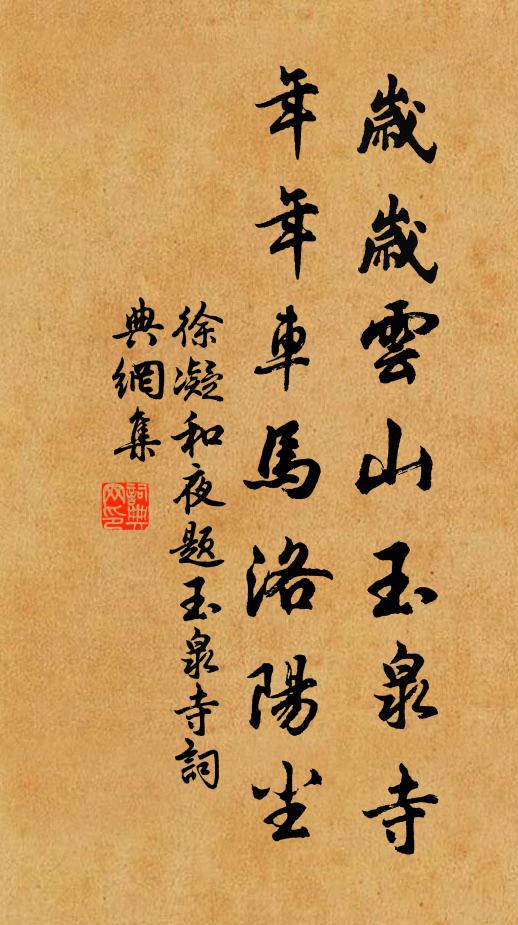 歲歲雲山玉泉寺
年年車馬洛陽尘
徐凝和夜題玉泉寺詞
典網集
詞典网印